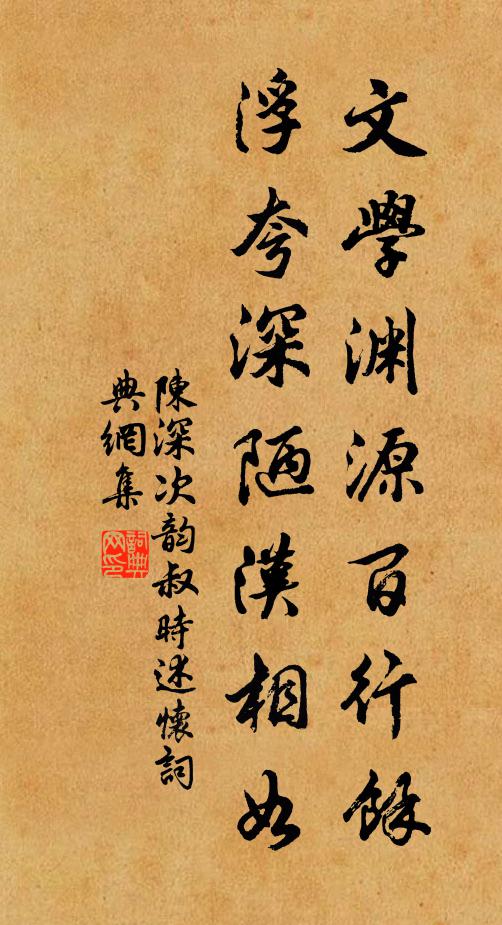 文學渊源百行餘
浮夸深陋漢相如
陳深次韵叔時述懷詞
典網集
詞典网印